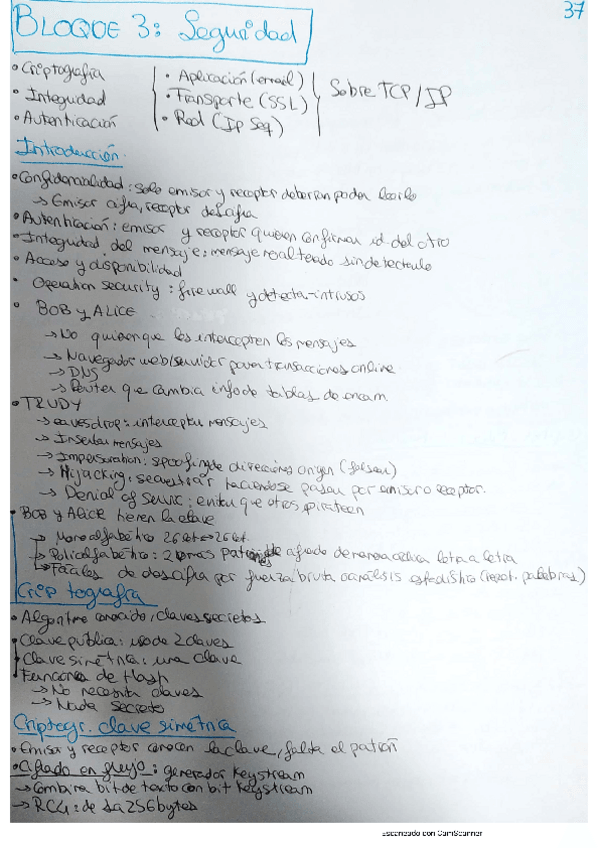 37
BLOQUE 3: Seguridad
• Criptografía
• Integridad
• Autenticación
• Aplicación (email)
• Transporte (SSL)
• Red (Ip Seq)
Sobre TCP/IP
Introducción.
• Confidencialidad: solo emisor y receptor deberían poder leerlo
→ Emisor cifra, receptor descifra
• Autenticación: emisor y receptor quieren confirmar id. del otro
• Integridad del mensaje: mensaje no alterado sin detectarlo
• Acceso y disponibilidad
• Operation security: firewall y detecta-intrusos
• BOB y ALICE
→ No quieren que les intercepten los mensajes
→ Navegador web/servidor para transacciones online
→ DNS
→ Router que cambia info de tablas de encam
• TRUDY
→ eavesdrop: interceptar mensajes
→ Insertar mensajes
→ Impersonation: spoofing de direcciones origen (falsear)
→ Hijacking: secuestrar haciéndose pasar por emisor o receptor.
→ Denial of Service: evitar que otros
• BOB y ALICE tienen la clave
→ Monoalfabético 26 let → 26 let.
→ Polialfabético: 2 o más patrones de cifrado de manera cíclica letra a letra
→ Fáciles de descifrar por fuerza bruta o análisis estadístico (repet. palabras)
Criptografía
• Algoritmo conocido, claves secretas
• Clave pública: uso de 2 claves
• Clave simétrica: una clave
• Funciones de Hash
→ No necesita claves
→ Nada secreto
Criptogr. clave simétrica
• Emisor y receptor conocen la clave, falta el patrón
• Cifrado en flujo: generador Keystream
→ Combina bit de texto con bit Keystream
→ RC4: de 1 a 256 bytes
Escaneado con CamScanner